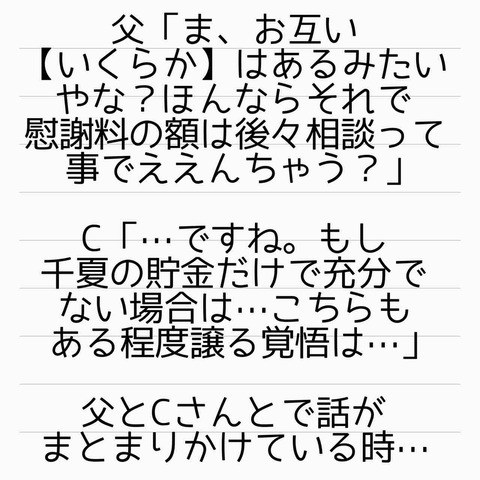 父「ま、お互い
【いくらか】はあるみたい
やな？ほんならそれで
慰謝料の額は後々相談って
事でええんちゃう？」
C「…ですね。もし
千夏の貯金だけで充分で
ない場合は…こちらも
ある程度譲る覚悟は…」
父とCさんとで話が
まとまりかけている時…